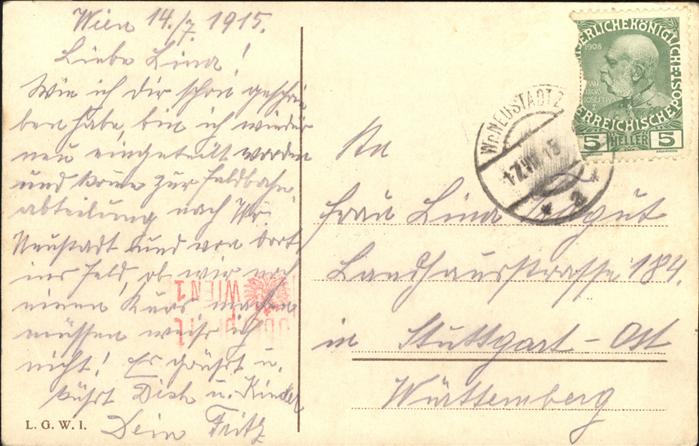 Wien 14./7. 1915.
Liebe Lina!
Wie ich dir schon geschrie
ben habe, bin ich wieder
neu eingeteilt worden
und komme zur Feldbahn-
abteilung nach Wr.
Neustadt und von dort
ins Feld, ob wir noch
einen Kurs machen
müssen weiß ich
nicht! Es grüßt u.
küßt Dich u. Kinder
Dein Fritz
L. G. W. I.
WIEN 1
An
Frau Lina
Landhausstrasse 184.
in Stuttgart-Ost
Württemberg
WR. NEUSTADT 2
17.VII.15
* 2 *
KAISERLICHEKÖNIGLICHE
ÖSTERREICHISCHE POST
1908
5 HELLER 5